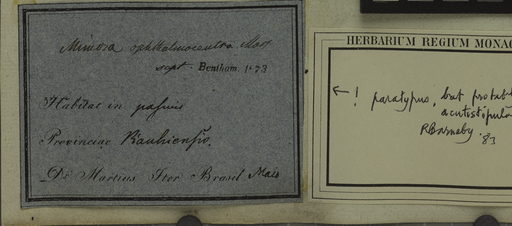 Mimosa ophthalmocentra Mart
sept. Bentham. 1873
Habitat in pascuis
Provinciae Bauhiensis
Dr. Martius Iter Brasil Maio
HERBARIUM REGIUM MONAC
← ! paratypus, but probabl
acutistipula
RBarneby. 83